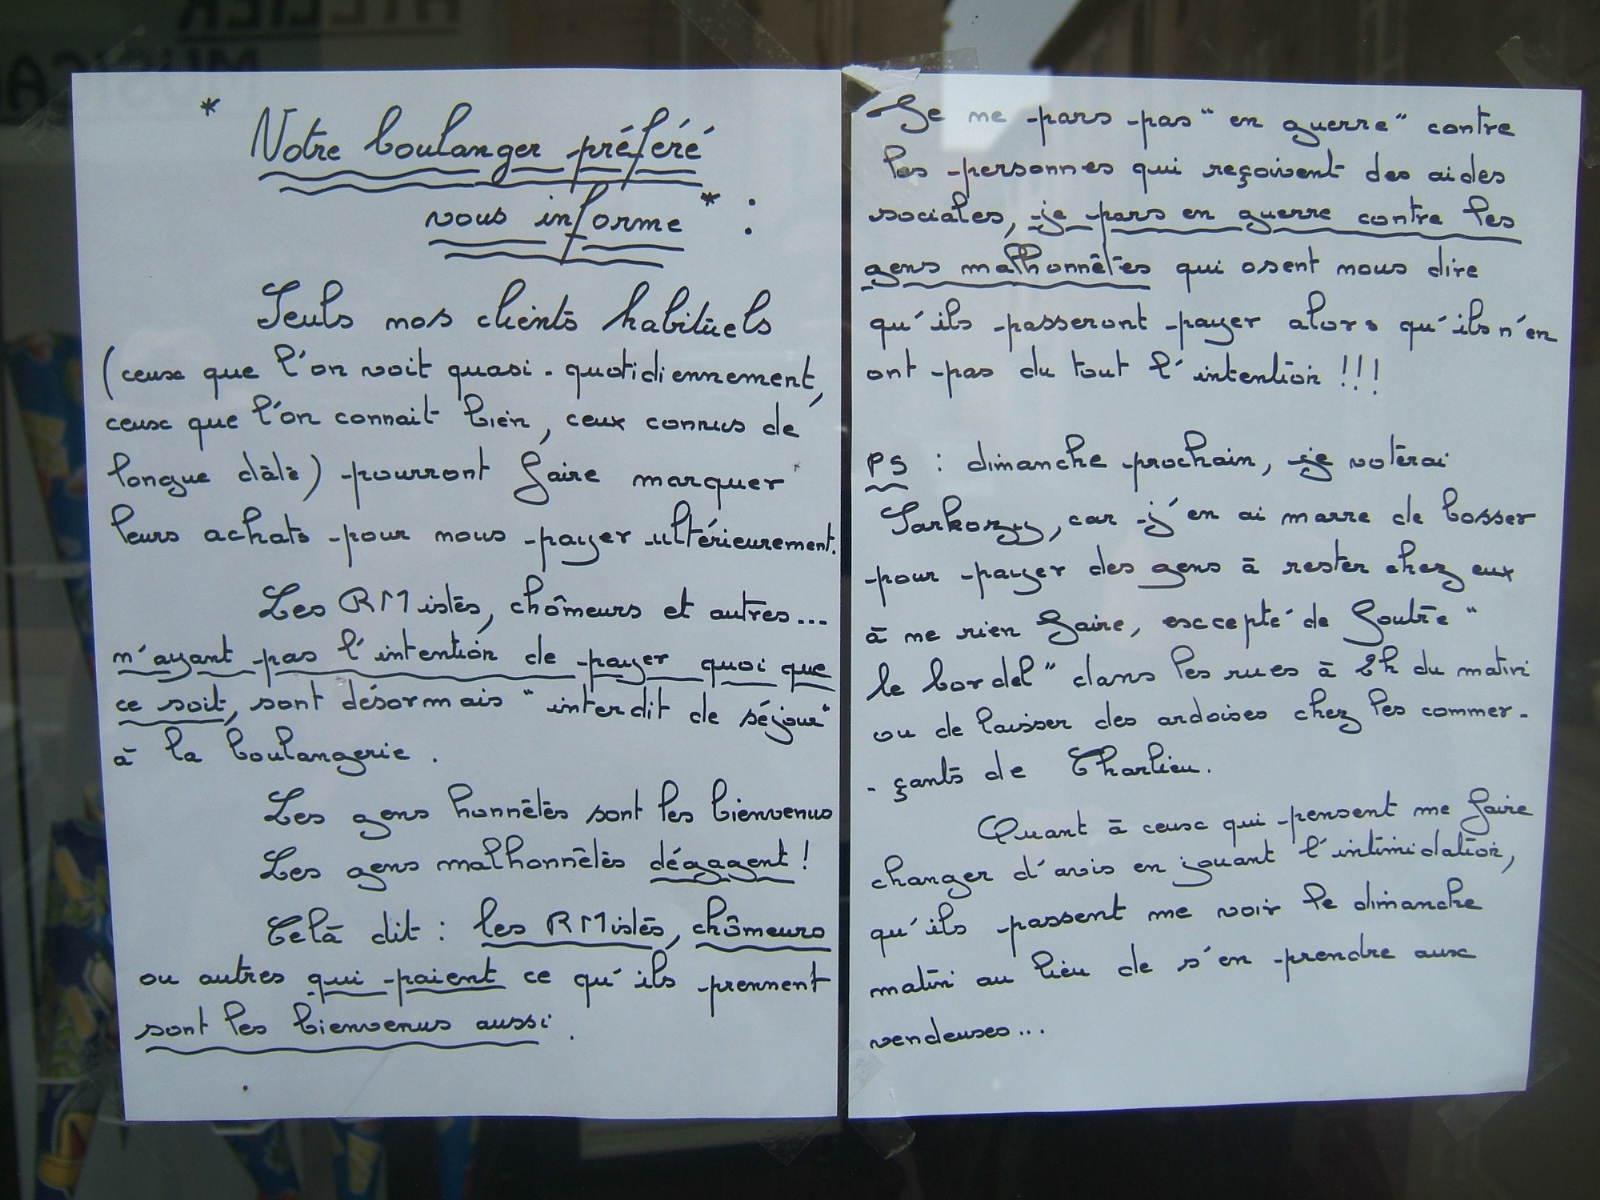 ATELIER
MUSICA
* Notre boulanger préféré
vous informe * :
Seuls nos clients habituels
(ceux que l'on voit quasi-quotidiennement,
ceux que l'on connait bien, ceux connus de
longue date) pourront faire marquer
leurs achats pour nous payer ultérieurement.
Les RMistes, chômeurs et autres...
n'ayant pas l'intention de payer quoi que
ce soit, sont désormais "interdit de séjour"
à la boulangerie.
Les gens honnêtes sont les bienvenus
Les gens malhonnêtes dégagent !
Celà dit : les RMistes, chômeurs
ou autres qui paient ce qu'ils prennent
sont les bienvenus aussi.
Je ne pars pas "en guerre" contre
les personnes qui reçoivent des aides
sociales, je pars en guerre contre les
gens malhonnêtes qui osent nous dire
qu'ils passeront payer alors qu'ils n'en
ont pas du tout l'intention !!!
PS : dimanche prochain, je voterai
Sarkozy, car j'en ai marre de bosser
pour payer des gens à rester chez eux
à ne rien faire, excepté de foutre "
le bordel" dans les rues à 2h du matin
ou de laisser des ardoises chez les commer-
-çants de Charlieu.
Quant à ceux qui pensent me faire
changer d'avis en jouant l'intimidation,
qu'ils passent me voir le dimanche
matin au lieu de s'en prendre aux
vendeuses...